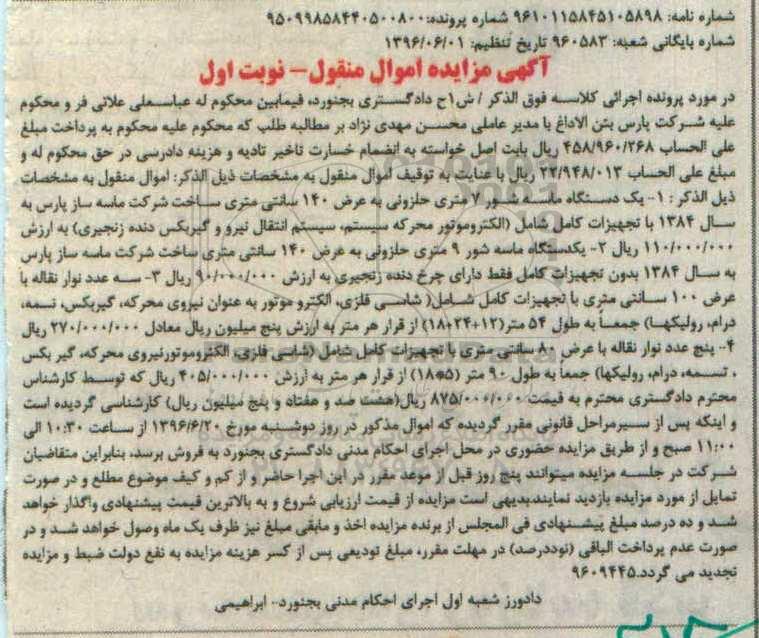 شماره نامه: ۹۶۱۰۱۱۵۸۴۵۱۰۵۸۹۸ شماره پرونده: ۹۵۰۹۹۸۵۸۴۴۰۵۰۰۸۰۰
شماره بایگانی شعبه: ۹۶۰۵۸۳ تاریخ تنظیم: ۱۳۹۶/۰۶/۰۱
آگهی مزایده اموال منقول- نوبت اول
در مورد پرونده اجرائی کلاسه فوق الذکر / ش۱ح دادگستری بجنورد، فیمابین محکوم له عباسعلی علائی فر و محکوم
علیه شرکت پارس بتن الاداغ با مدیر عاملی محسن مهدی نژاد بر مطالبه طلب که محکوم علیه محکوم به پرداخت مبلغ
علی الحساب ۴۵۸/۹۶۰/۲۶۸ ریال بابت اصل خواسته به انضمام خسارت تاخیر تادیه و هزینه دادرسی در حق محکوم له و
مبلغ علی الحساب ۲۲/۹۴۸/۰۱۳ ریال با عنایت به توقیف اموال منقول به مشخصات ذیل الذکر: اموال منقول به مشخصات
ذیل الذکر : ۱- یک دستگاه ماسه شور ۷ متری حلزونی به عرض ۱۴۰ سانتی متری ساخت شرکت ماسه ساز پارس به
سال ۱۳۸۴ با تجهیزات کامل شامل (الکتروموتور محرکه سیستم، سیستم انتقال نیرو و گیربکس دنده زنجیری) به ارزش
۱۱۰/۰۰۰/۰۰۰ ریال ۲- یکدستگاه ماسه شور ۹ متری حلزونی به عرض ۱۴۰ سانتی متری ساخت شرکت ماسه ساز پارس
به سال ۱۳۸۴ بدون تجهیزات کامل فقط دارای چرخ دنده زنجیری به ارزش ۹۰/۰۰۰/۰۰۰ ریال ۳- سه عدد نوار نقاله با
عرض ۱۰۰ سانتی متری با تجهیزات کامل شامل( شاسی فلزی، الکترو موتور به عنوان نیروی محرکه، گیربکس، تسمه،
درام، رولیکها) جمعاً به طول ۵۴ متر(۱۲+۲۴+۱۸) از قرار هر متر به ارزش پنج میلیون ریال معادل ۲۷۰/۰۰۰/۰۰۰ ریال
۴- پنج عدد نوار نقاله با عرض ۸۰ سانتی متری با تجهیزات کامل شامل (شاسی فلزی، الکتروموتورنیروی محرکه، گیر بکس
، تسمه، درام، رولیکها) جمعا به طول ۹۰ متر (۵*۱۸) از قرار هر متر به ارزش ۴۰۵/۰۰۰/۰۰۰ ریال که توسط کارشناس
محترم دادگستری محترم به قیمت ۸۷۵/۰۰۰/۰۰۰ ریال(هشت صد و هفتاد و پنج میلیون ریال) کارشناسی گردیده است
و اینکه پس از سیرمراحل قانونی مقرر گردیده که اموال مذکور در روز دوشنبه مورخ ۱۳۹۶/۶/۲۰ از ساعت ۱۰:۳۰ الی
۱۱:۰۰ صبح و از طریق مزایده حضوری در محل اجرای احکام مدنی دادگستری بجنورد به فروش برسد، بنابراین متقاضیان
شرکت در جلسه مزایده میتوانند پنج روز قبل از موعد مقرر در این اجرا حاضر و از کم و کیف موضوع مطلع و در صورت
تمایل از مورد مزایده بازدید نمایند.بدیهی است مزایده از قیمت ارزیابی شروع و به بالاترین قیمت پیشنهادی واگذار خواهد
شد و ده درصد مبلغ پیشنهادی فی المجلس از برنده مزایده اخذ و مابقی مبلغ نیز ظرف یک ماه وصول خواهد شد و در
صورت عدم پرداخت الباقی (نوددرصد) در مهلت مقرر، مبلغ تودیعی پس از کسر هزینه مزایده به نفع دولت ضبط و مزایده
تجدید می گردد.۹۶۰۹۴۴۵
دادورز شعبه اول اجرای احکام مدنی بجنورد- ابراهیمی